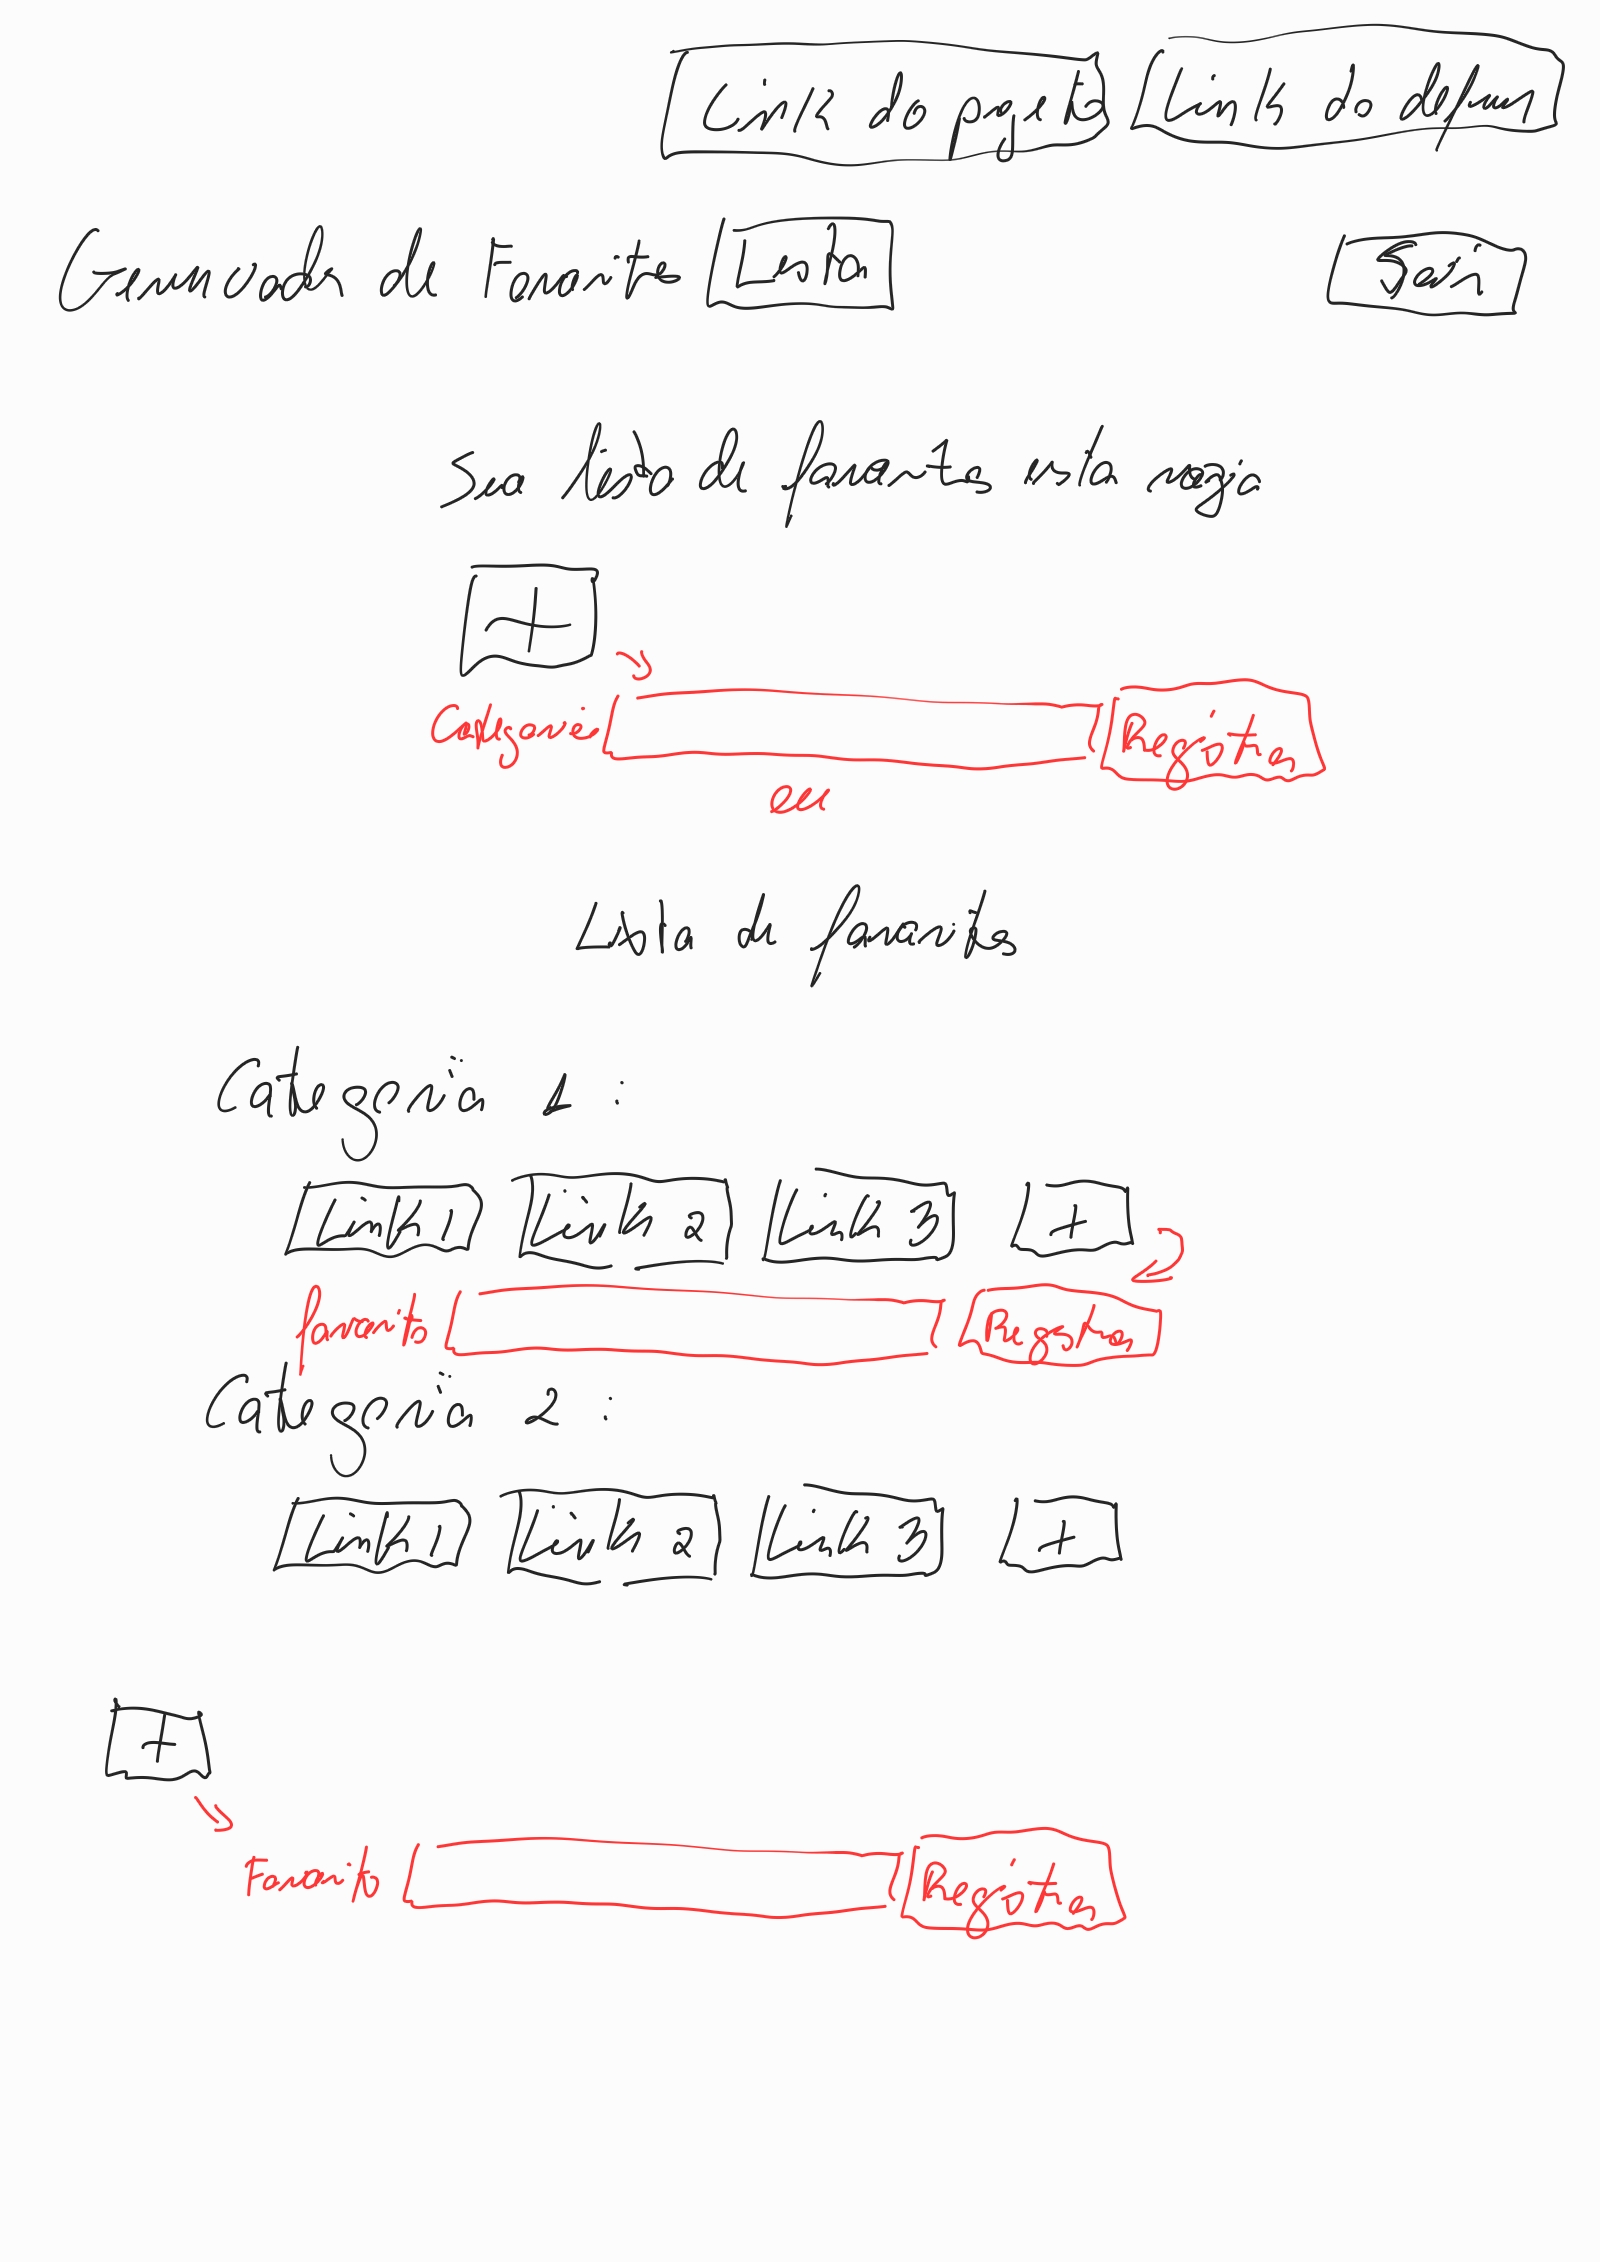 Link do projeto Link do
Gerenciador de Favorito Lista Sair
Sua lista de favoritos esta vazia
+
Categoria Registrar
ou
Lista de favoritos
Categoria 1 :
Link 1 Link 2 Link 3 +
favorito Registrar
Categoria 2 :
Link 1 Link 2 Link 3 +
+
Favorito Registrar